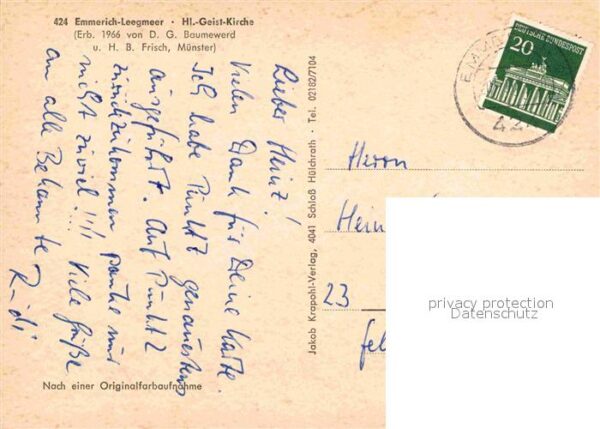 424 Emmerich-Leegmeer · Hl.-Geist-Kirche
(Erb. 1966 von D. G. Baumewerd
u. H. B. Frisch, Münster)
Lieber Heinz!
Vielen Dank für Deine Karte.
Ich habe Punkt 1 genauestens
ausgeführt. Auf Punkt 2
zurückzukommen, danke und
nicht zuviel!!! Viele Grüße
an alle Bekannte
Rudi
Nach einer Originalfarbaufnahme
Jakob Krapohl-Verlag, 4041 Schloß Hülchrath · Tel. 02182/7104
EMME
42
DEUTSCHE BUNDESPOST
20
Herrn
Hein
23
privacy protection
Datenschutz